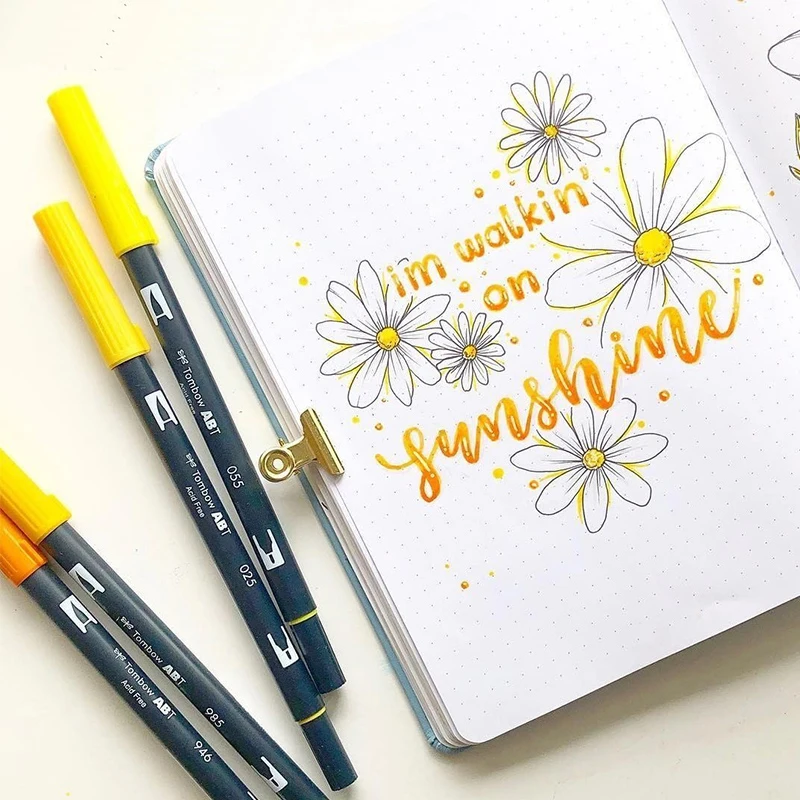 i'm walkin'
on
sunshine
Tombow ABT
Acid Free
055
Tombow ABT
Acid Free
025
Tombow ABT
985
Tombow ABT
Acid Free
946